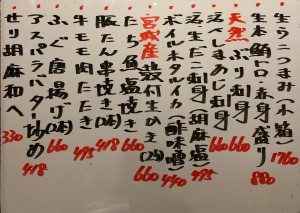 生うにつまみ(木箱) 1760
生本鮪トロ・赤身盛り 880
天然ぶり刺身 660
活〆しまあじ刺身 660
活生だこ刺身(胡麻塩) 495
ボイルホタルイカ(酢味噌) 440
宮城産殻付生かき(2ヶ) 660
たち魚塩焼き 660
豚たん串焼き(2本) 418
牛モモ肉たたき 495
ふぐ唐揚げ(2ヶ) 660
アスパラバター炒め 418
せり胡麻和へ 330